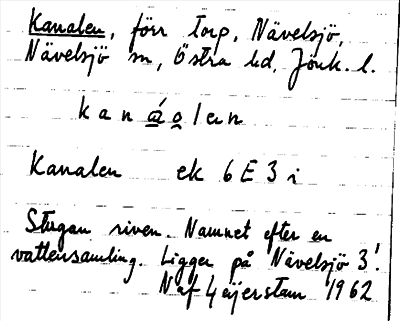 Kanalen, förr torp, Nävelsjö,
Nävelsjö sn, Östra hd, Jönk. l.
kanáolen
Kanalen ek 6 E 3 i
Stugan riven. Namnet efter en
vattensamling. Ligger på Nävelsjö 3¹.
N af Geijerstam 1962